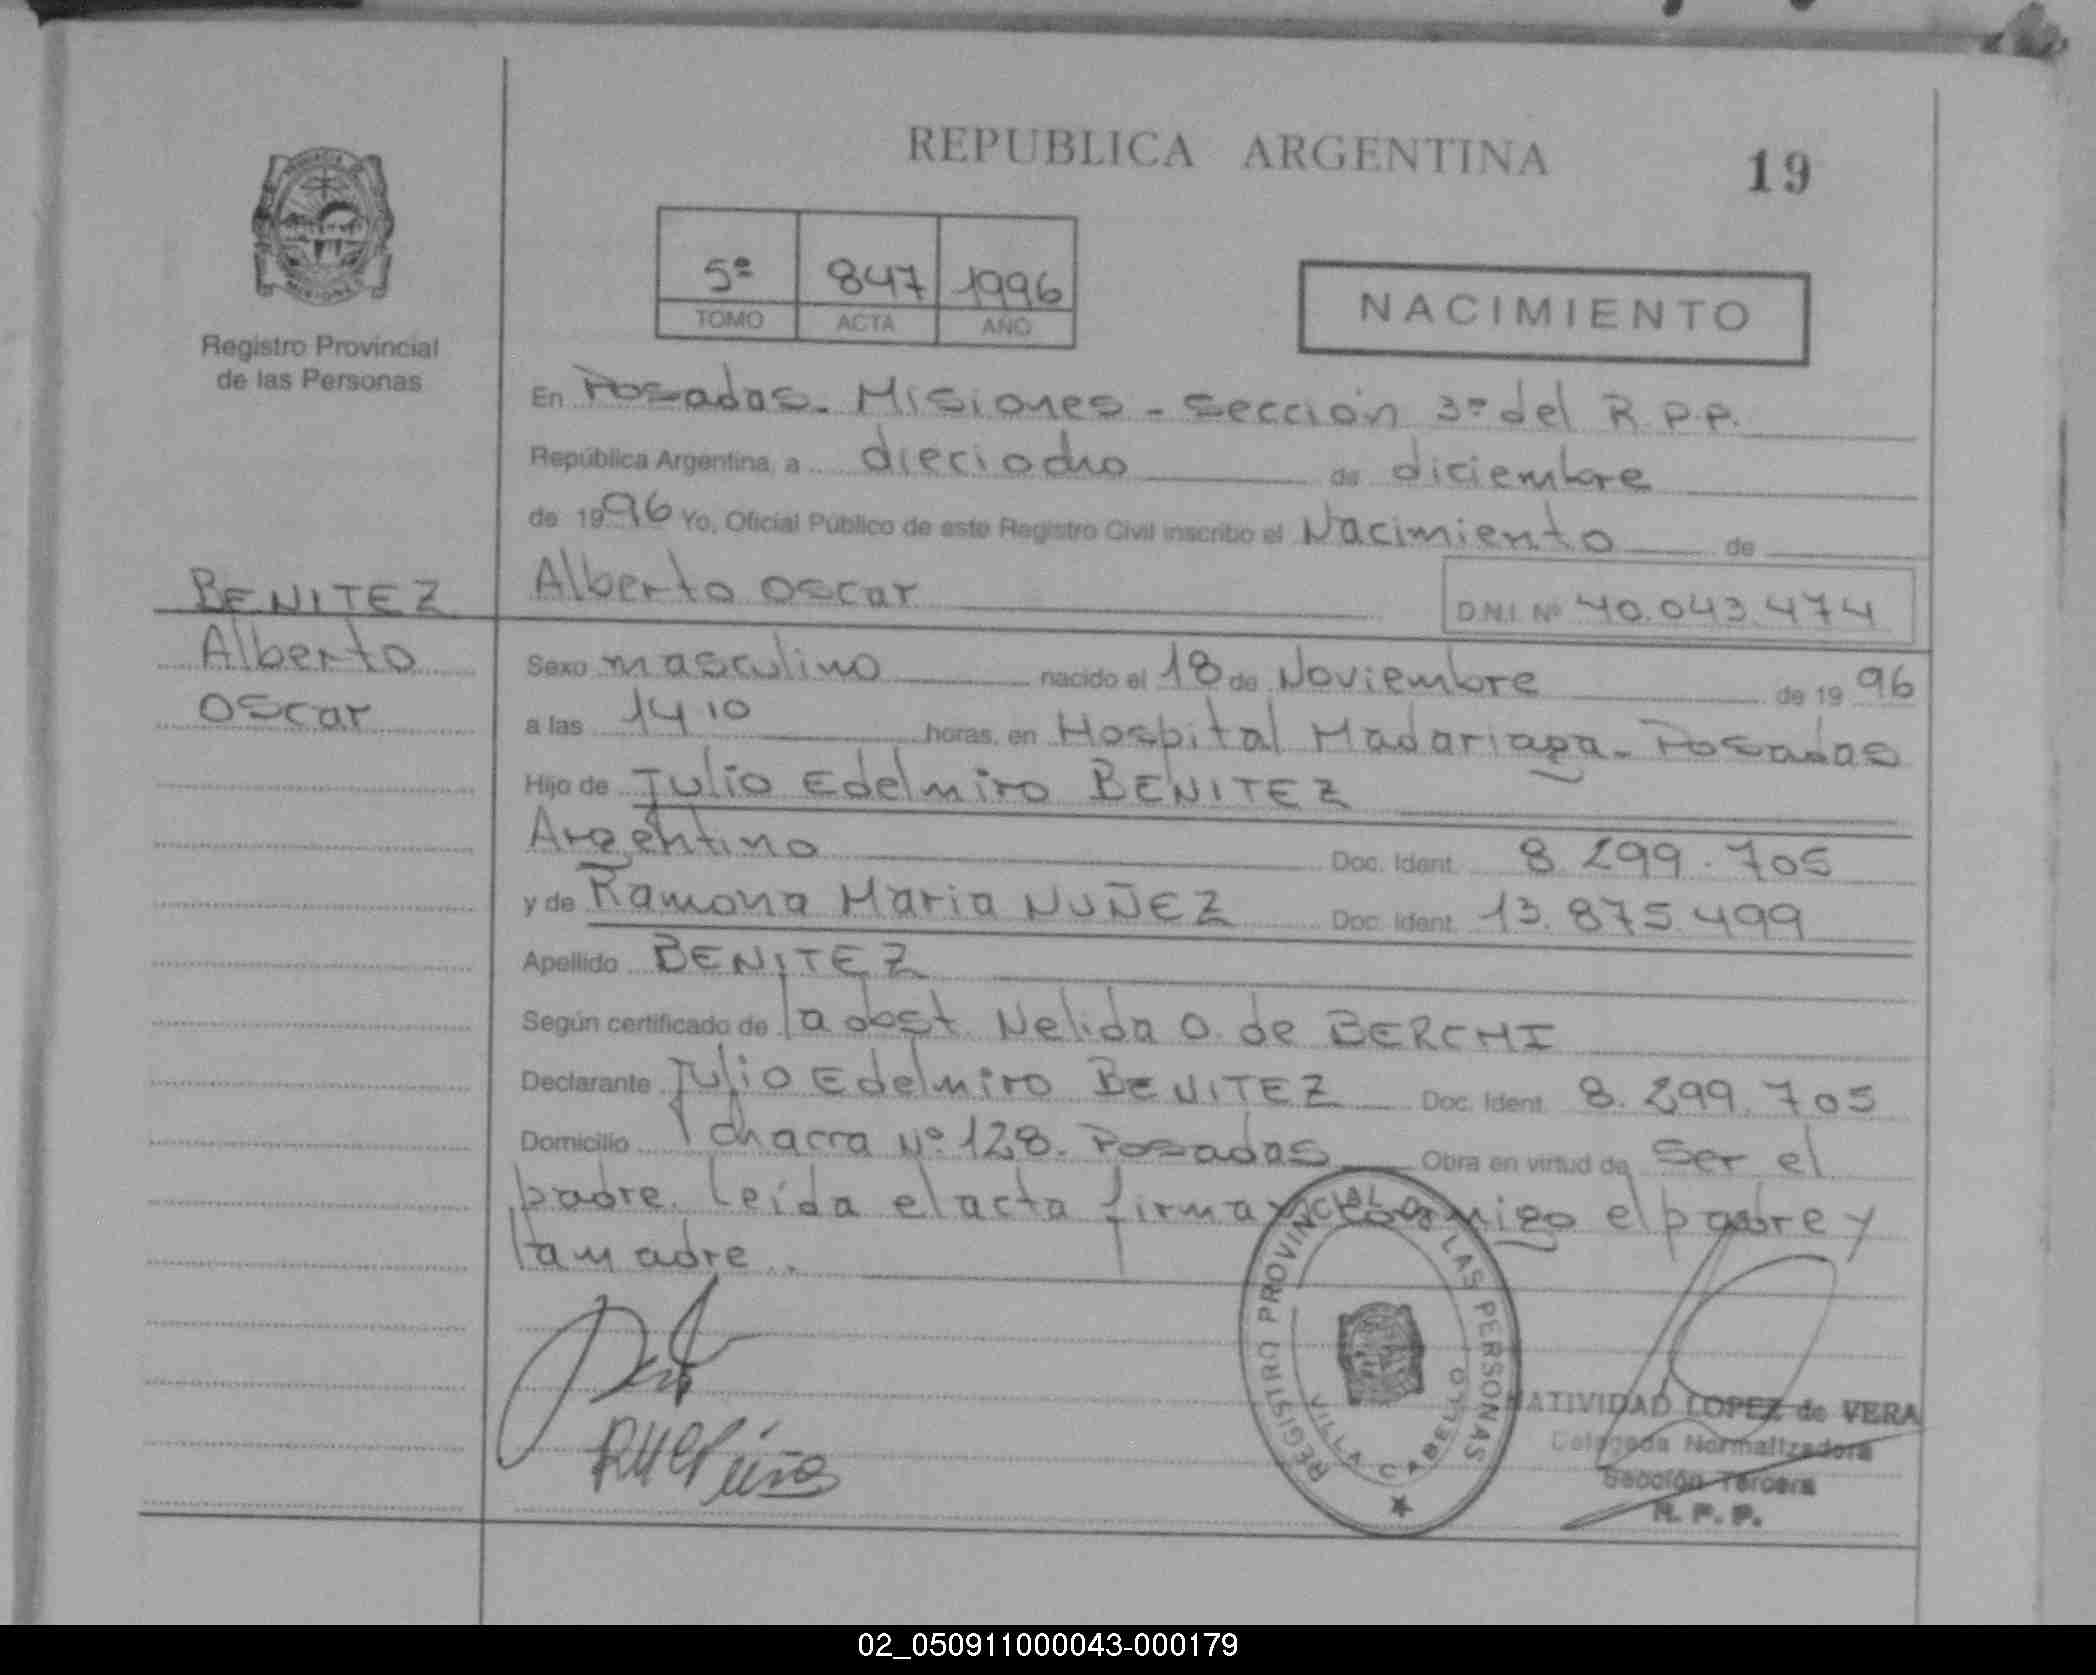 REPUBLICA ARGENTINA
19
5º 847 1996
TOMO ACTA AÑO
NACIMIENTO
Registro Provincial
de las Personas
En Posadas - Misiones - Sección 3º del R.P.P.
República Argentina, a dieciocho de diciembre
de 1996 Yo, Oficial Público de este Registro Civil inscribo el Nacimiento de
BENITEZ
Alberto
Oscar
Alberto Oscar D.N.I. Nº 40.043.474
Sexo masculino nacido el 18 de Noviembre de 1996
a las 14 10 horas, en Hospital Madariaga - Posadas
Hijo de Julio Edelmiro BENITEZ
Argentino Doc. Ident. 8.299.705
y de Ramona Maria NUÑEZ Doc. Ident. 13.875.499
Apellido BENITEZ
Según certificado de la obst. Nelida O. de BERCHI
Declarante Julio Edelmiro BENITEZ Doc. Ident. 8.299.705
Domicilio chacra Nº 128. Posadas Obra en virtud de ser el
padre. Leída el acta firma conmigo el padre y
la madre.
REGISTRO PROVINCIAL DE LAS PERSONAS
VILLA CABELLO
NATIVIDAD LOPEZ de VERA
Delegada Normalizadora
Sección Tercera
R. P. P.
02_050911000043-000179